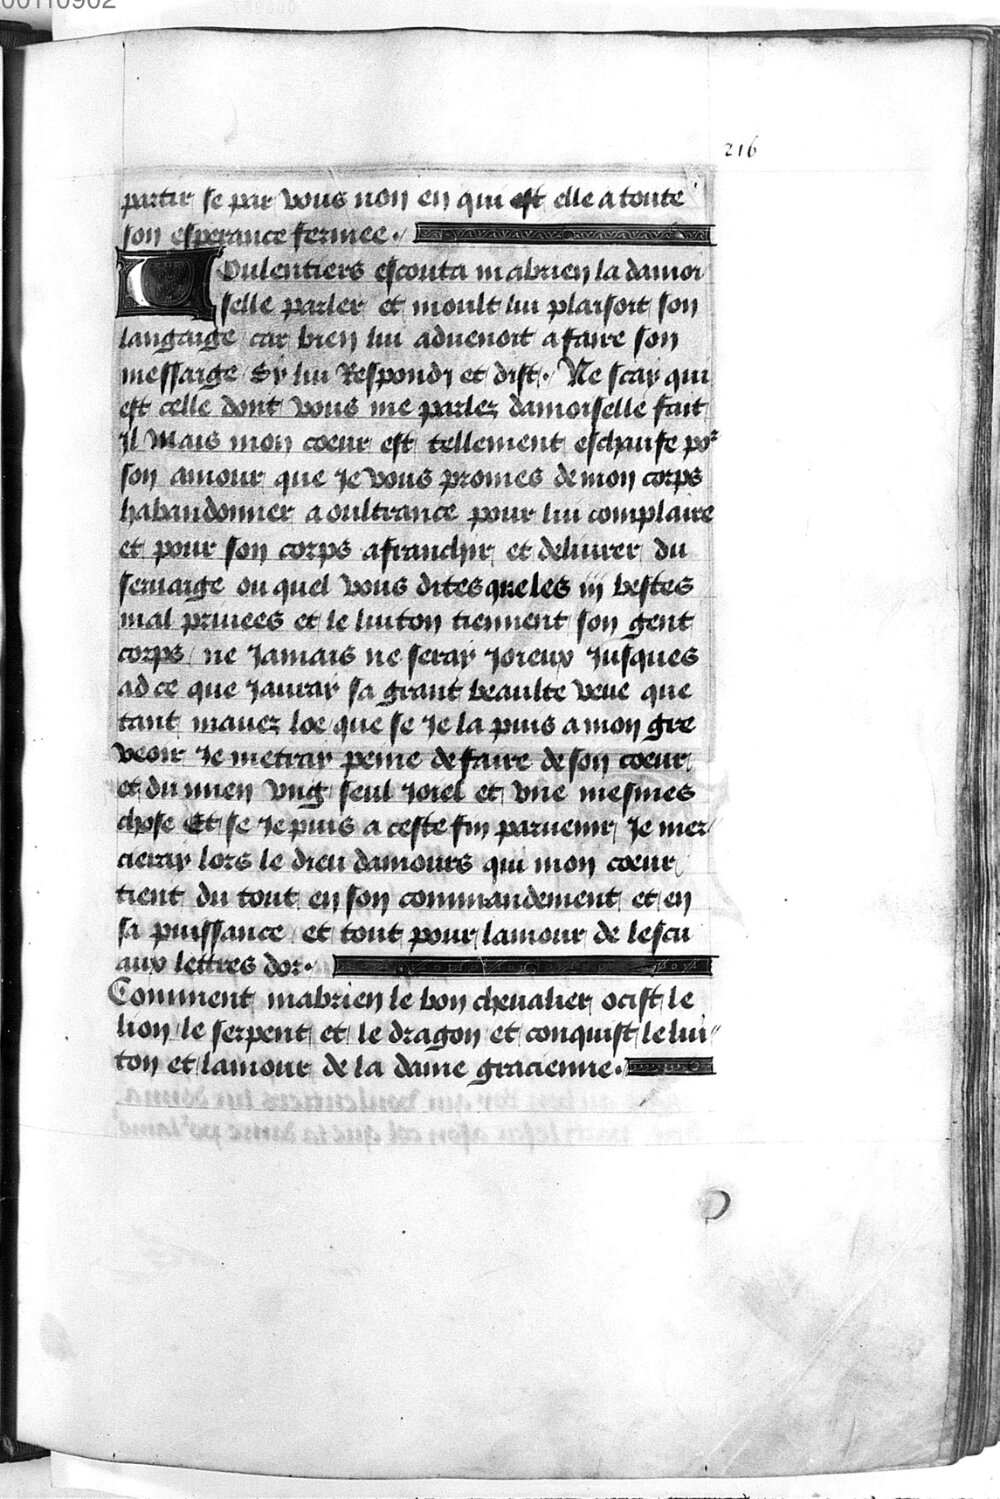 00110902
216
partir se par vous non en qui est elle a toute
son esperance fermee.
Voulentiers escouta mabrien la damoi
selle parler et moult lui plaisoit son
langaige car bien lui aduenoit a faire son
messaige Sy lui Respondi et dist. Ne scay qui
est celle dont vous me parlez damoiselle fait
il Mais mon coeur est tellement eschaufe po^r
son amour que Je vous promes de mon corps
habandonner a oultrance pour lui complaire
et pour son corps afranchir et deliurer du
seruaige ou quel vous dites que les iij bestes
mal priuees et le luiton tiennent son gent
corps ne Jamais ne seray Joieux Jusques
ad ce que Jauray sa grant beaulte veue que
tant mauez loe que se Je la puis a mon gre
veoir Je metray peine de faire de son coeur
et du mien vng seul Joiel et vne mesmes
chose Et se Je puis a ceste fin paruenir Je mer
cieray lors le dieu damours qui mon coeur
tient du tout en son commandement et en
sa puissance et tout pour lamour de lescu
aux lettres dor.
Comment mabrien le bon cheualier ocist le
lion le serpent et le dragon et conquist le lui
ton et lamour de la dame gracienne.